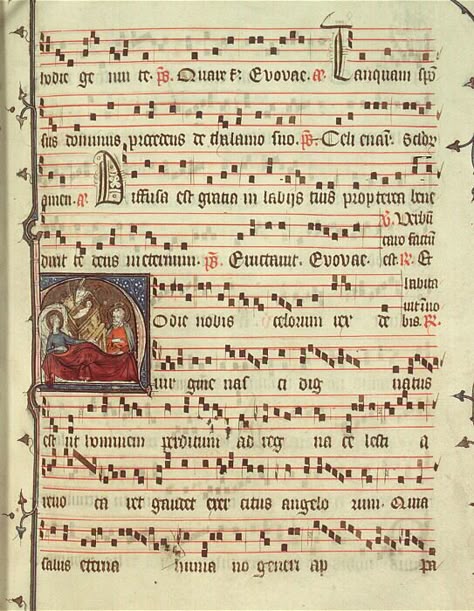 hodie ge nui te. ps. Quare fr. Evovae. a. Tanquam spo
sus dominus procedens de thalamo suo. ps. Celi enar. Seclor
amen. a. Diffusa est gratia in labijs tuis propterea bene
dixit te deus in eternum. ps. Eructavit. Evovae.
V. Verbu
caro factu
est. R. Et
habita
vit i no
bis. R.
Hodie nobis celorum rex de
vir gine nas ci dig natus
est ut hominem perditum ad reg na ce lesti a
revo ca ret gaudet exer citus angelo rum. Quia
salus eterna huma no generi ap pa